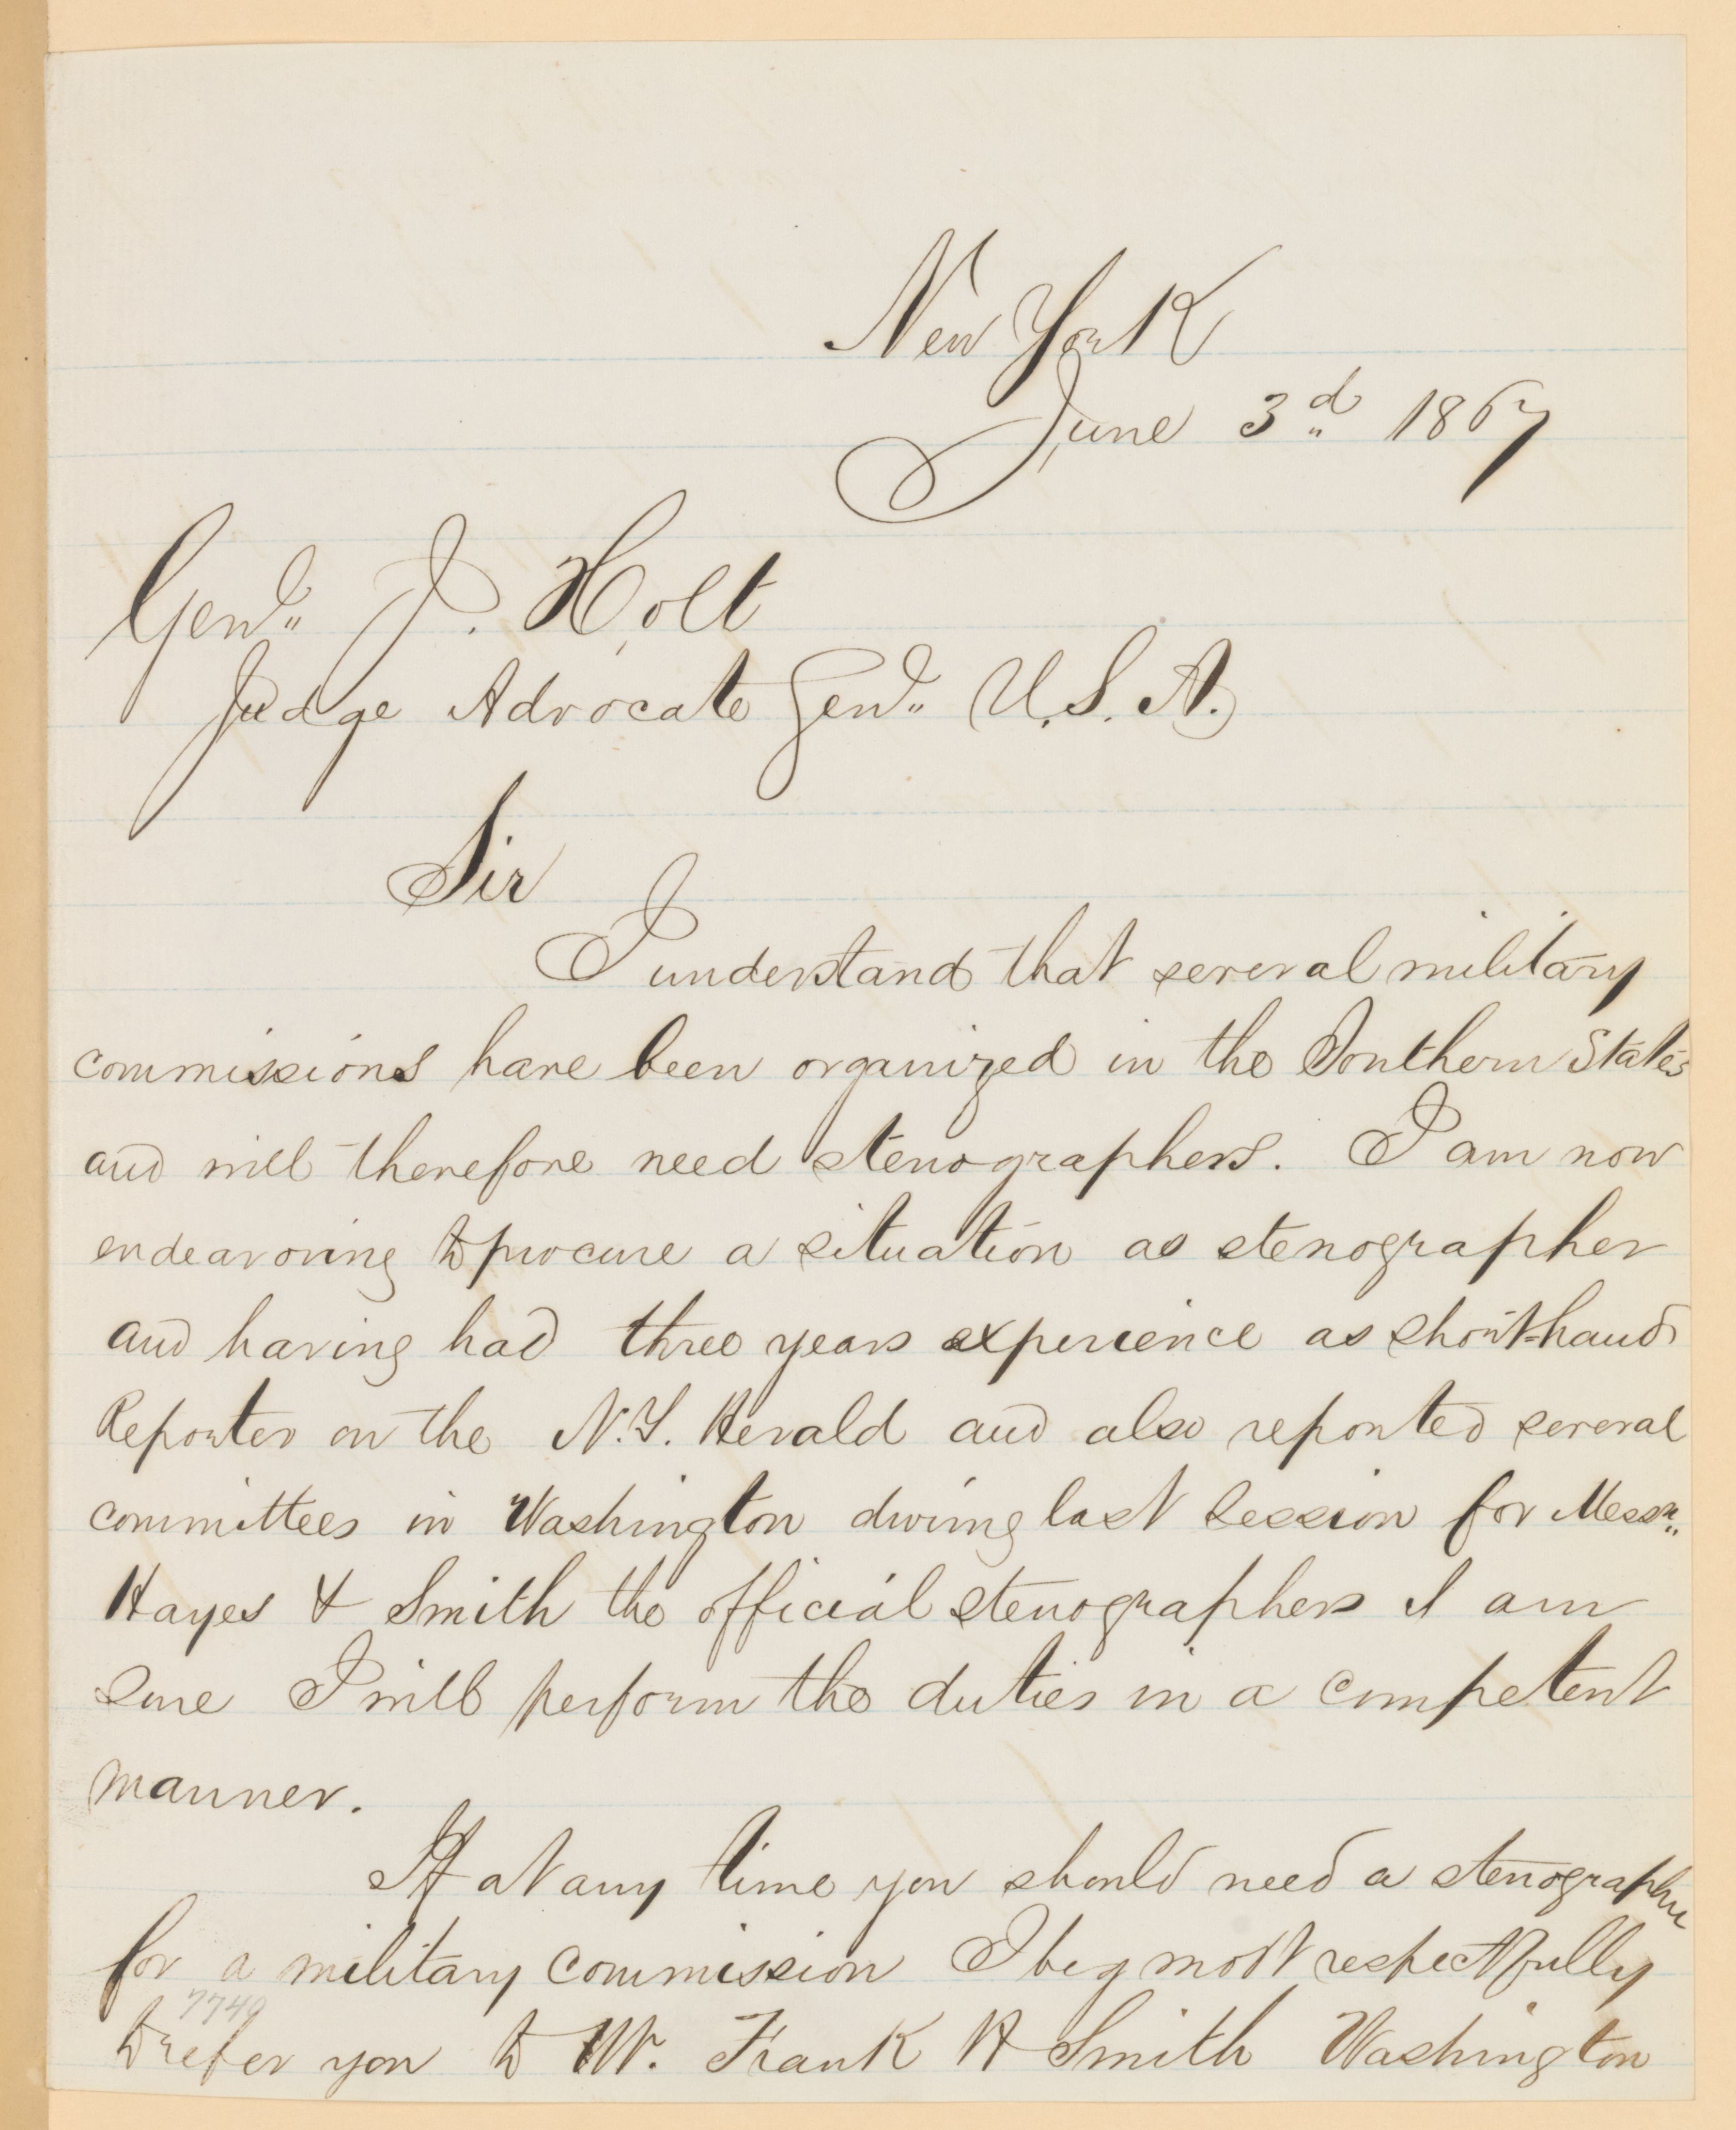 New York
June 3d 1867
Genl. J. Holt
Judge Advocate Genl. U.S.A.
Sir
I understand that several military
commissions have been organized in the Southern States
and will therefore need stenographers. I am now
endeavoring to procure a situation as stenographer
and having had three years experience as short-hand
Reporter on the N.Y. Herald and also reported several
committees in Washington during last session for Messrs.
Hayes & Smith the official stenographers I am
sure I will perform the duties in a competent
manner.
If at any time you should need a stenographer
for a military commission I beg most respectfully
7749
to refer you to Mr. Frank H Smith Washington